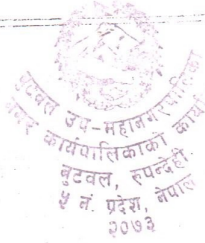 बुटवल उप-महानगरपालिका
नगर कार्यपालिकाको कार्या
बुटवल, रुपन्देही.
५ नं. प्रदेश, नेपाल
२०७३